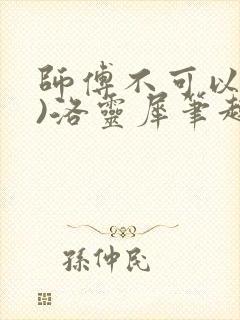 師傅不可以
)洛靈犀筆趣
孫仲民